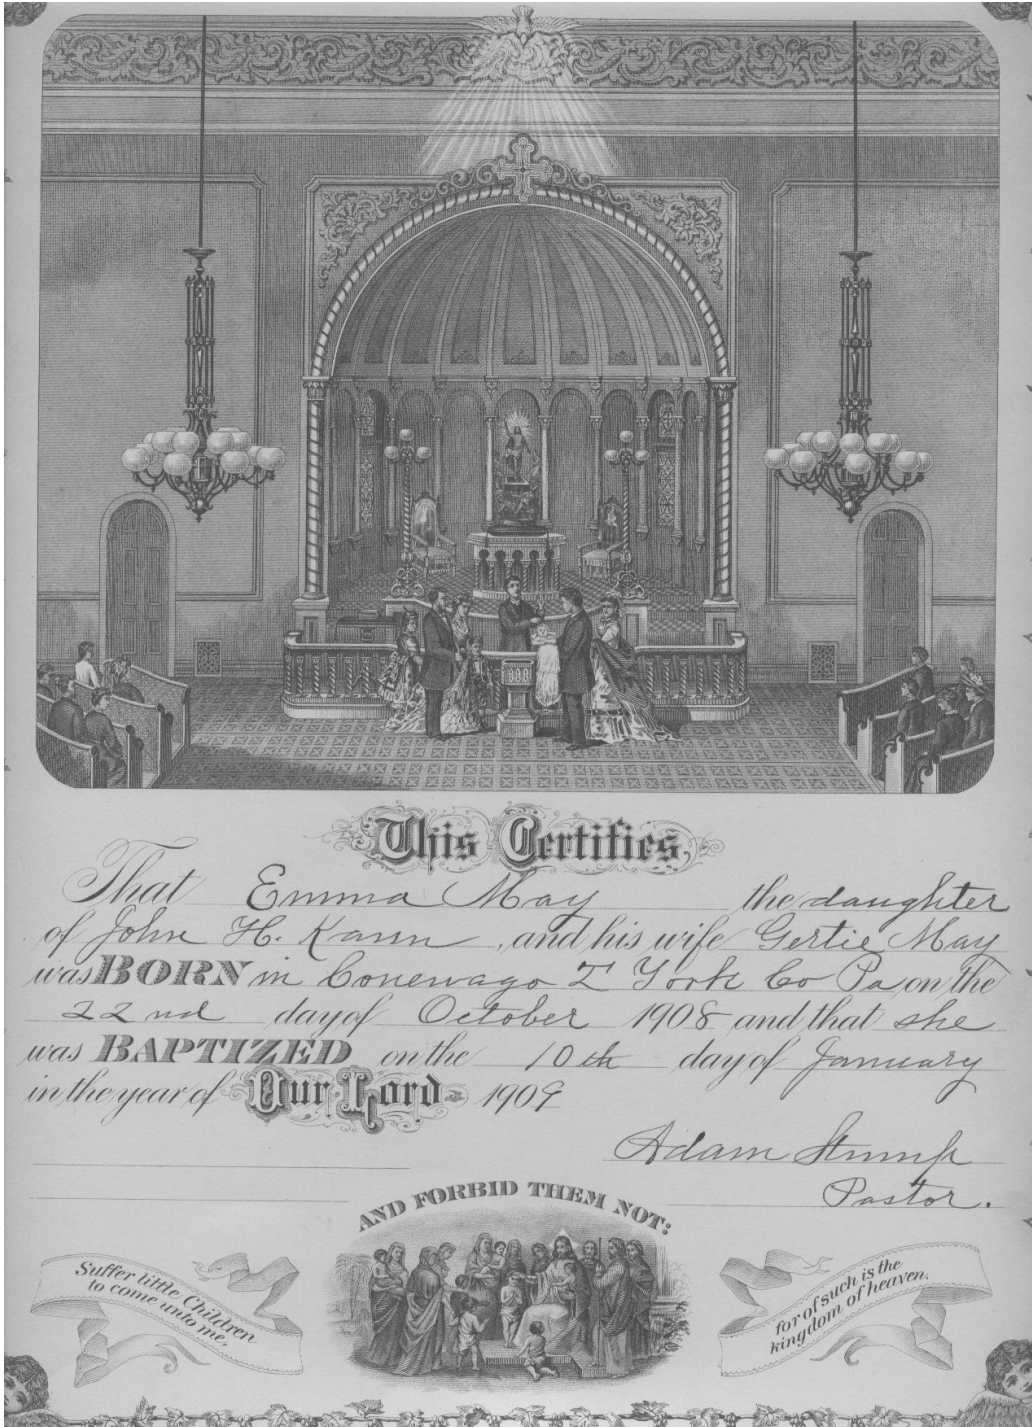 This Certifies,
That Emma May the daughter
of John H. Kann, and his wife Gertie May
was BORN in Conewago T York Co Pa on the
22nd day of October 1908 and that she
was BAPTIZED on the 10th day of January
in the year of Our Lord 1909
Adam Stump
Pastor.
AND FORBID THEM NOT:
Suffer little Children
to come unto me,
for of such is the
kingdom of heaven.